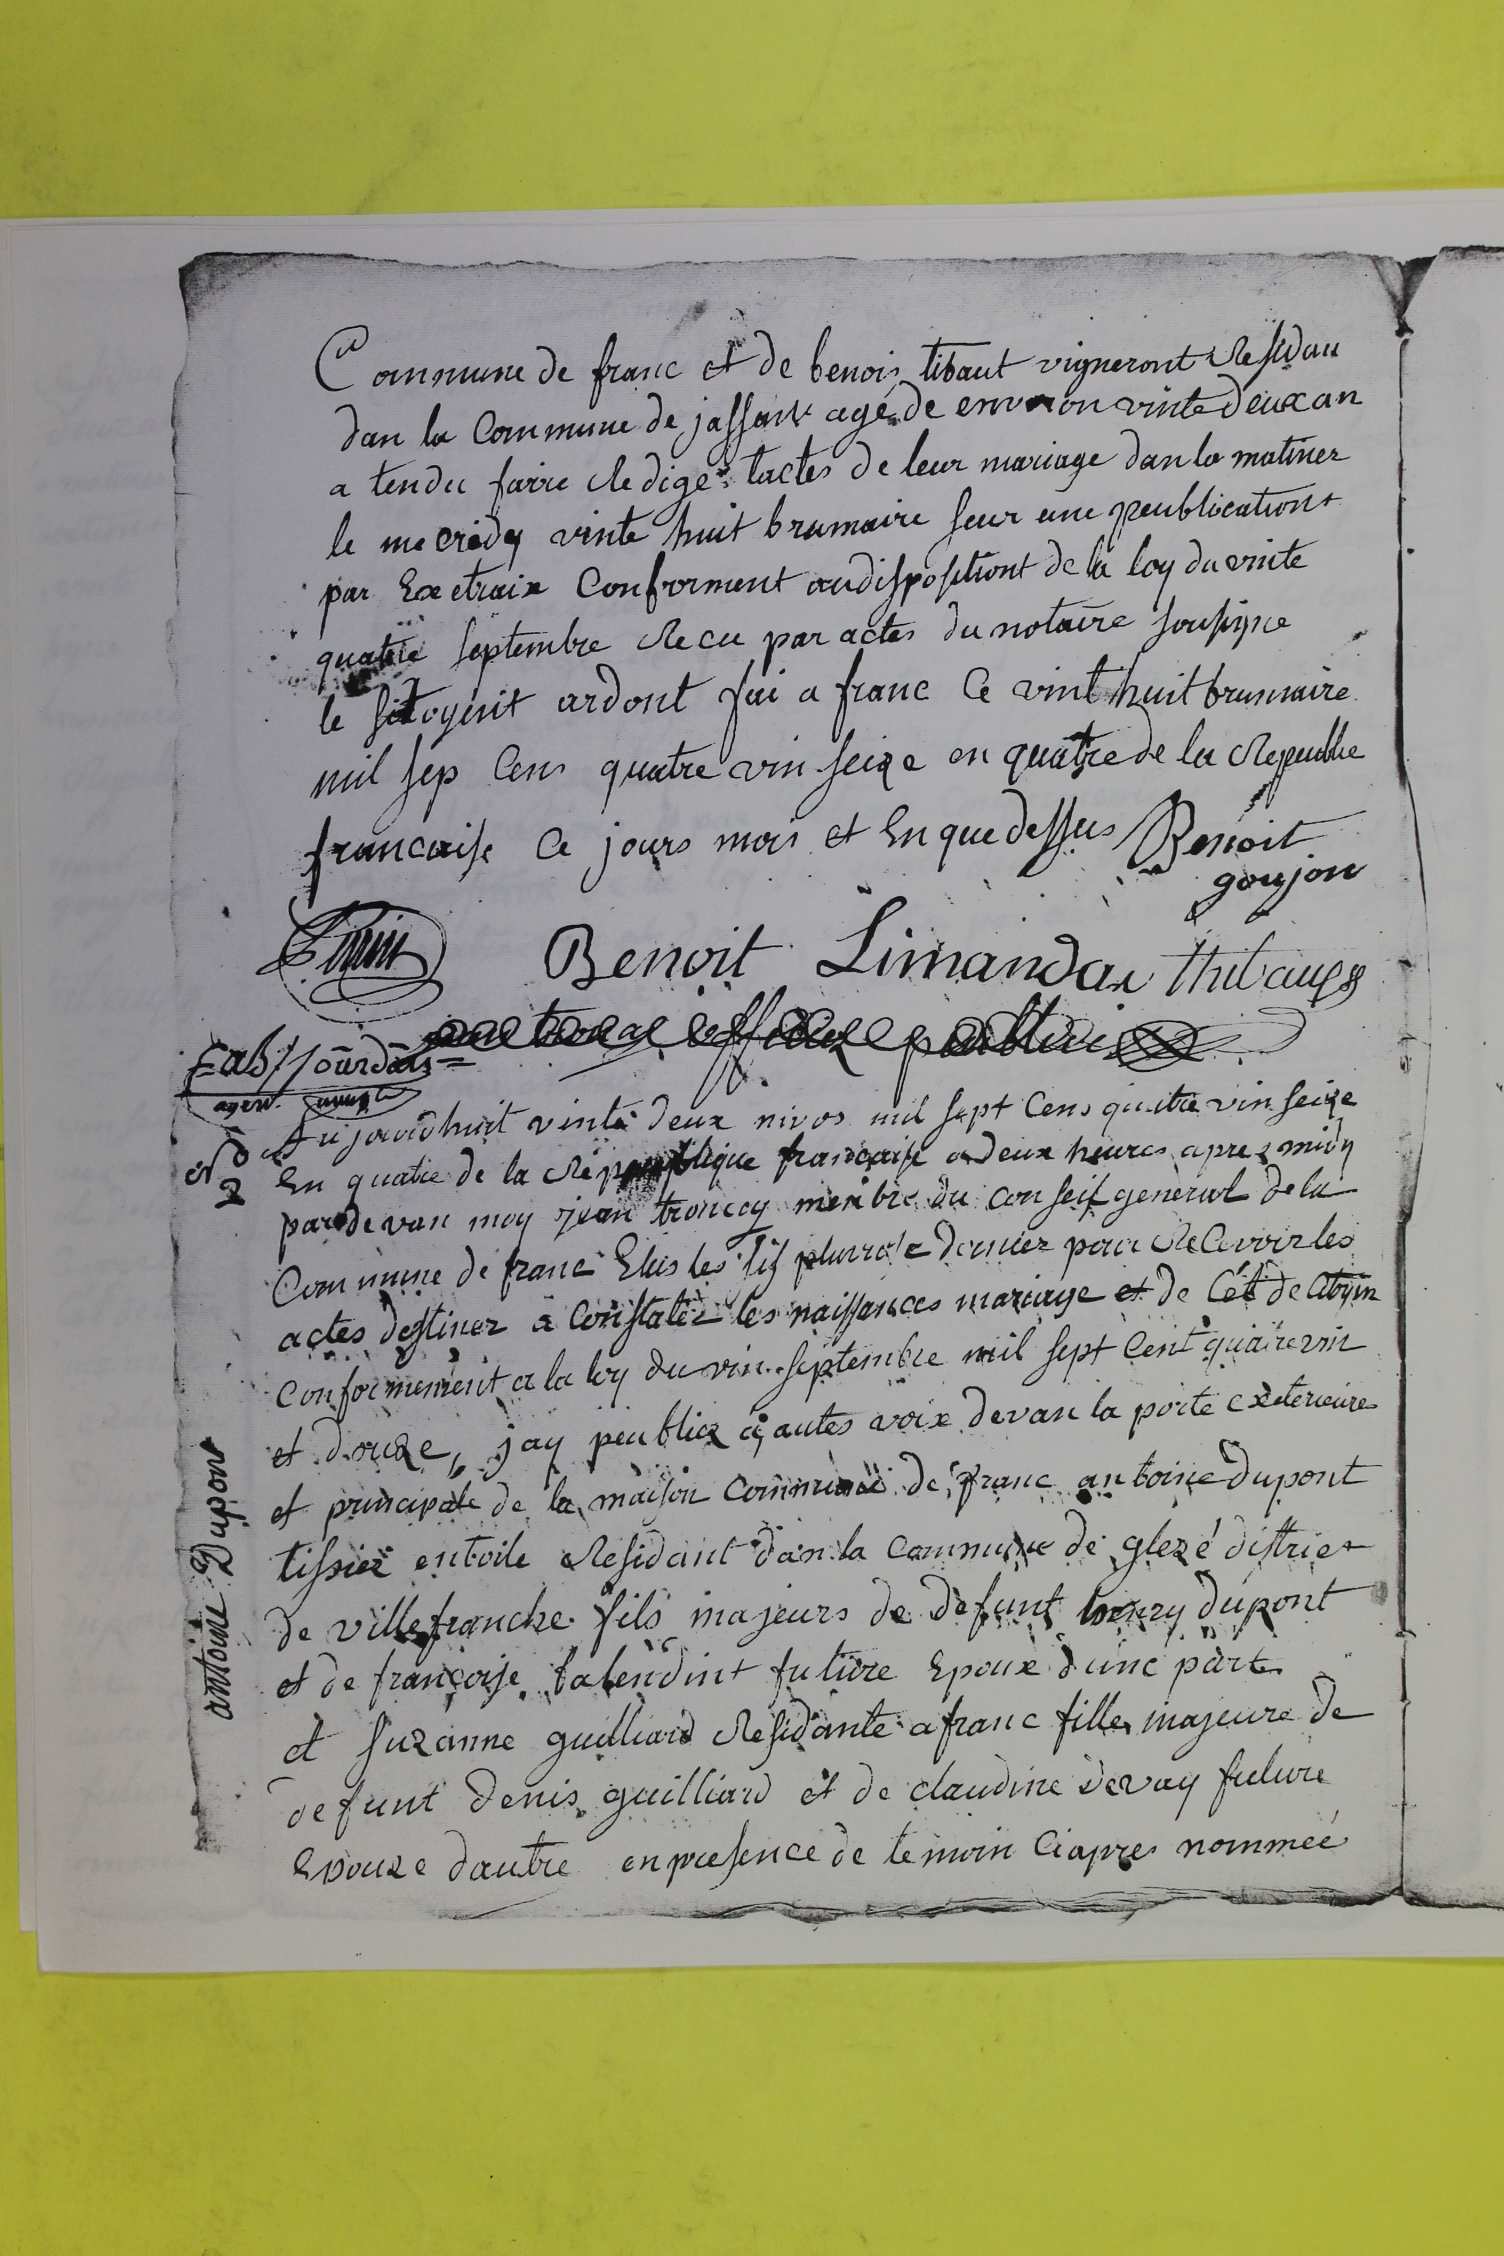 Commune de franc et de benois tibaut vigneront Residau
dan la Commune de jassant agé de environ vinte deux an
a tendu faire Redigé lactes de leur mariage dan la matinez
le mecridy vinte huit brumaire seur une peublications
par Exetraix Conforment audispositiont de la loy du vinte
quatre septembre Recu par actes du notaire sousigne
le sitoyent ardont fai a franc Ce vint huit brumaire
mil sep Cens quatre vin seize en quatre de la Repeublie
francaise Ce jours mois et En que dessus Benoit
goujon
Perrin Benoit Limandas thibaud
officier public
Jourdan
agent
N° 2
Aujourdhuit vinte deux nivos mil sept Cens quatre vin seize
En quatre de la Répeublique francaise a deux heures apres midy
pardevan moy jean troncy membre du Conseil general de la
Commune de franc Elus les six pluviose dernier pour Recevoir les
actes destinez a Constatez les naissances mariage et de Cét de Citoyin
Conformement a la loy du vin septembre mil sept Cent quatrevin
et douze, jay peubliez a autes voix devan la porte exeterieure
et principale de la maison Commune de franc antoine dupont
tissiez entoile Residant dan la Commune de glezé district
de villefranche fils majeurs de defunt henry dupont
et de françoise talendint future Epoux dune part
et suzanne guilliard Residante a franc fille majeure de
defunt denis guilliard et de claudine devay future
Epouze dautre en presence de temoin Ciapres nommeé
antoine Dupont